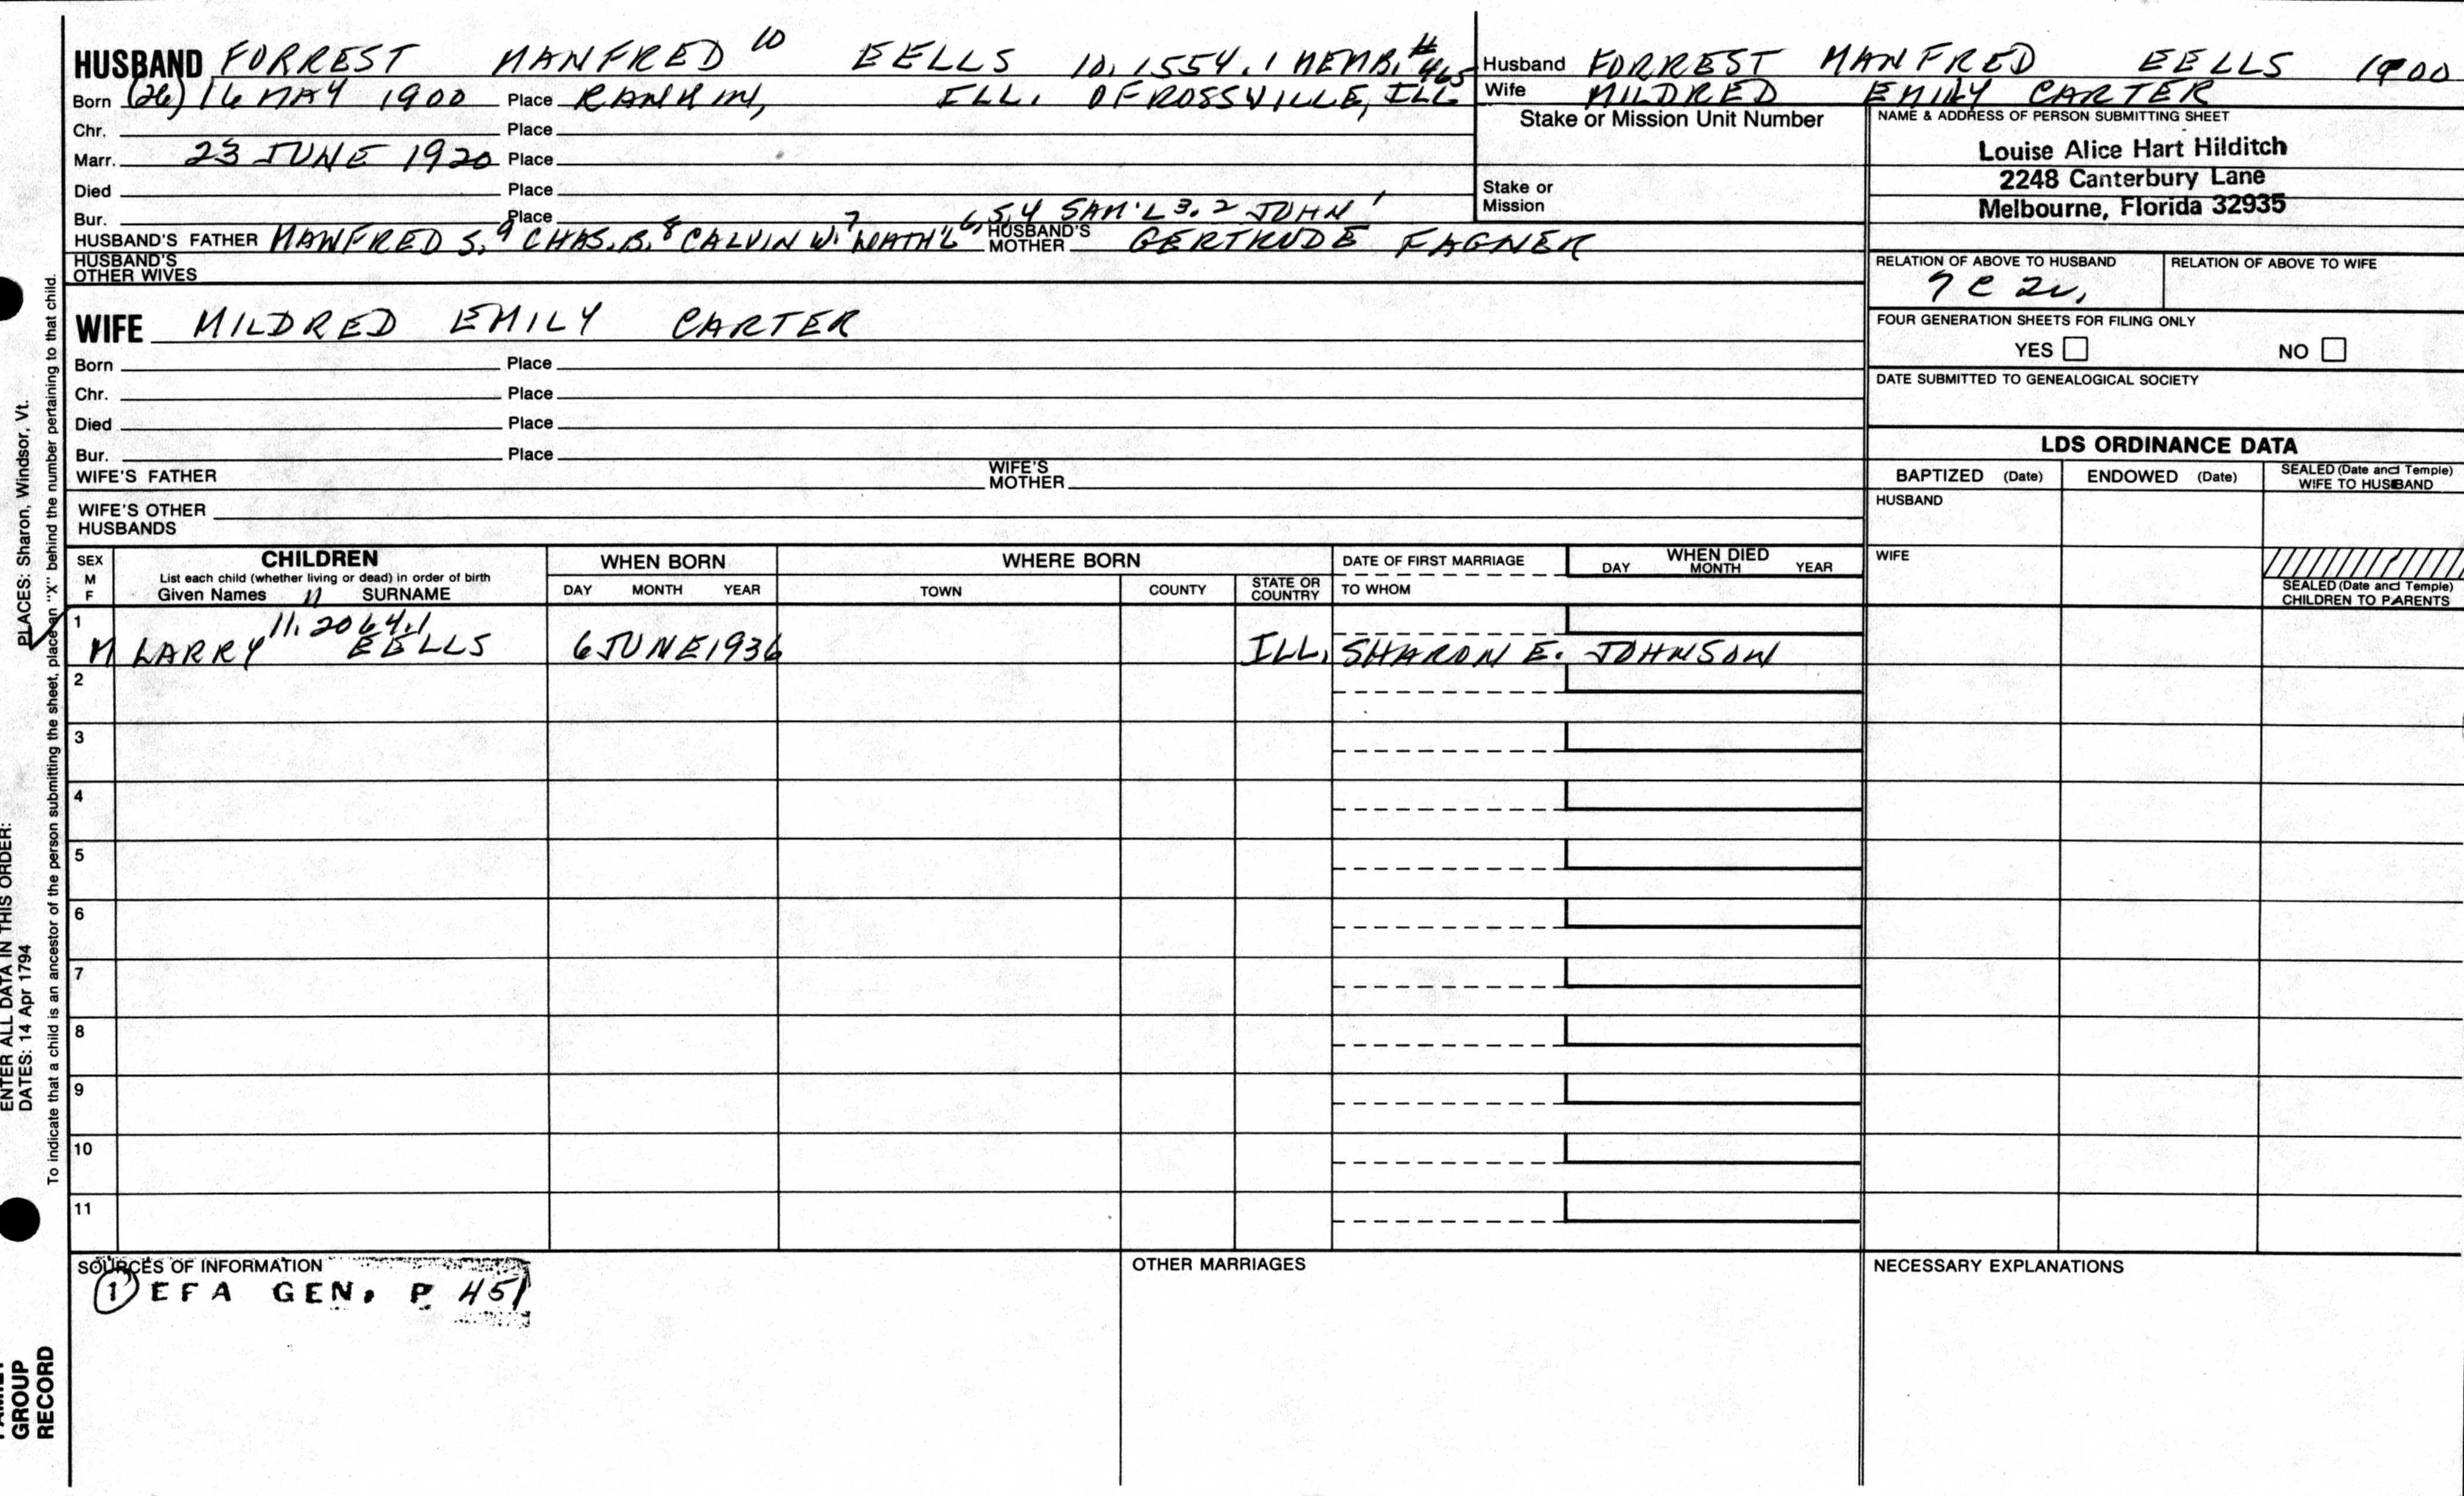 HUSBAND FORREST MANFRED 10 EELLS 10.1554.1 MEMB. # 465
Born (26) 16 MAY 1900 Place RANKIN, ILL. OF ROSSVILLE, ILL
Chr. Place
Marr. 23 JUNE 1920 Place
Died Place
Bur. Place
HUSBAND'S FATHER MANFRED S.9 CHAS. B.8 CALVIN W.7 NATH'L 6,5,4 SAM'L 3,2 JOHN 1 HUSBAND'S MOTHER GERTRUDE FAGNER
HUSBAND'S OTHER WIVES
WIFE MILDRED EMILY CARTER
Born Place
Chr. Place
Died Place
Bur. Place
WIFE'S FATHER WIFE'S MOTHER
WIFE'S OTHER HUSBANDS
Husband FORREST MANFRED EELLS 1900
Wife MILDRED EMILY CARTER
Stake or Mission Unit Number
Stake or
Mission
NAME & ADDRESS OF PERSON SUBMITTING SHEET
Louise Alice Hart Hilditch
2248 Canterbury Lane
Melbourne, Florida 32935
RELATION OF ABOVE TO HUSBAND RELATION OF ABOVE TO WIFE
FOUR GENERATION SHEETS FOR FILING ONLY
YES NO
DATE SUBMITTED TO GENEALOGICAL SOCIETY
LDS ORDINANCE DATA
BAPTIZED (Date) ENDOWED (Date) SEALED (Date and Temple) WIFE TO HUSBAND
HUSBAND
WIFE
SEALED (Date and Temple)
CHILDREN TO PARENTS
SEX CHILDREN WHEN BORN WHERE BORN DATE OF FIRST MARRIAGE WHEN DIED
M List each child (whether living or dead) in order of birth DAY MONTH YEAR
F Given Names 11 SURNAME DAY MONTH YEAR TOWN COUNTY STATE OR COUNTRY TO WHOM
1 11.2064.1
M LARRY EELLS 6 JUNE 1936 ILL. SHARON E. JOHNSON
2
3
4
5
6
7
8
9
10
11
SOURCES OF INFORMATION OTHER MARRIAGES NECESSARY EXPLANATIONS
1 EFA GEN. P 451
PLACES: Sharon, Windsor, Vt.
ENTER ALL DATA IN THIS ORDER:
DATES: 14 Apr 1794
To indicate that a child is an ancestor of the person submitting the sheet, place an "X" behind the number pertaining to that child.
GROUP
RECORD